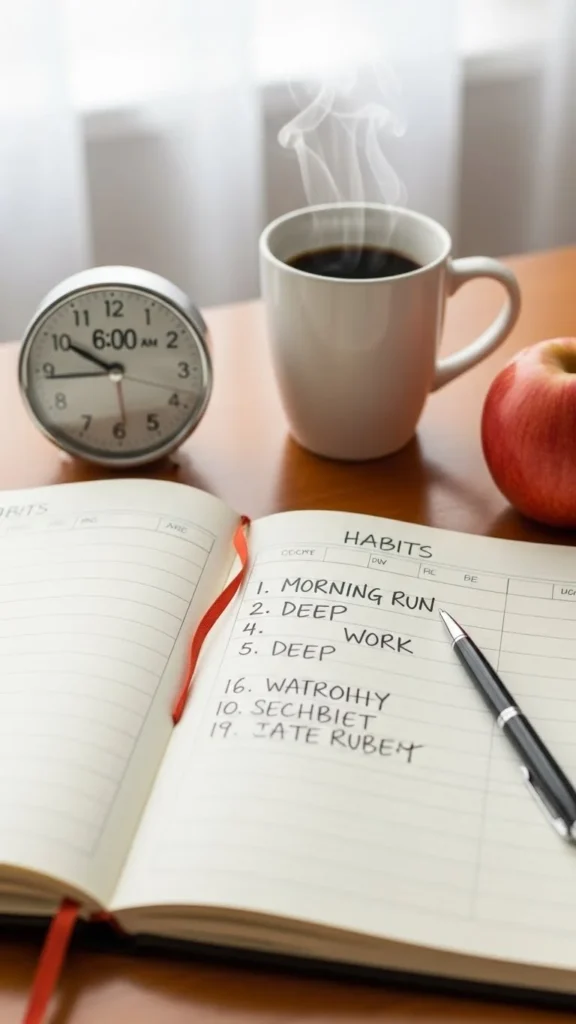 12
11 1
10 6:00 AM 2
9 3
8 4
7 5
6
HABITS
1. MORNING RUN
2. DEEP
4. WORK
5. DEEP
16. WATROHHY
10. SECHBIET
19. IATE RUBEMT